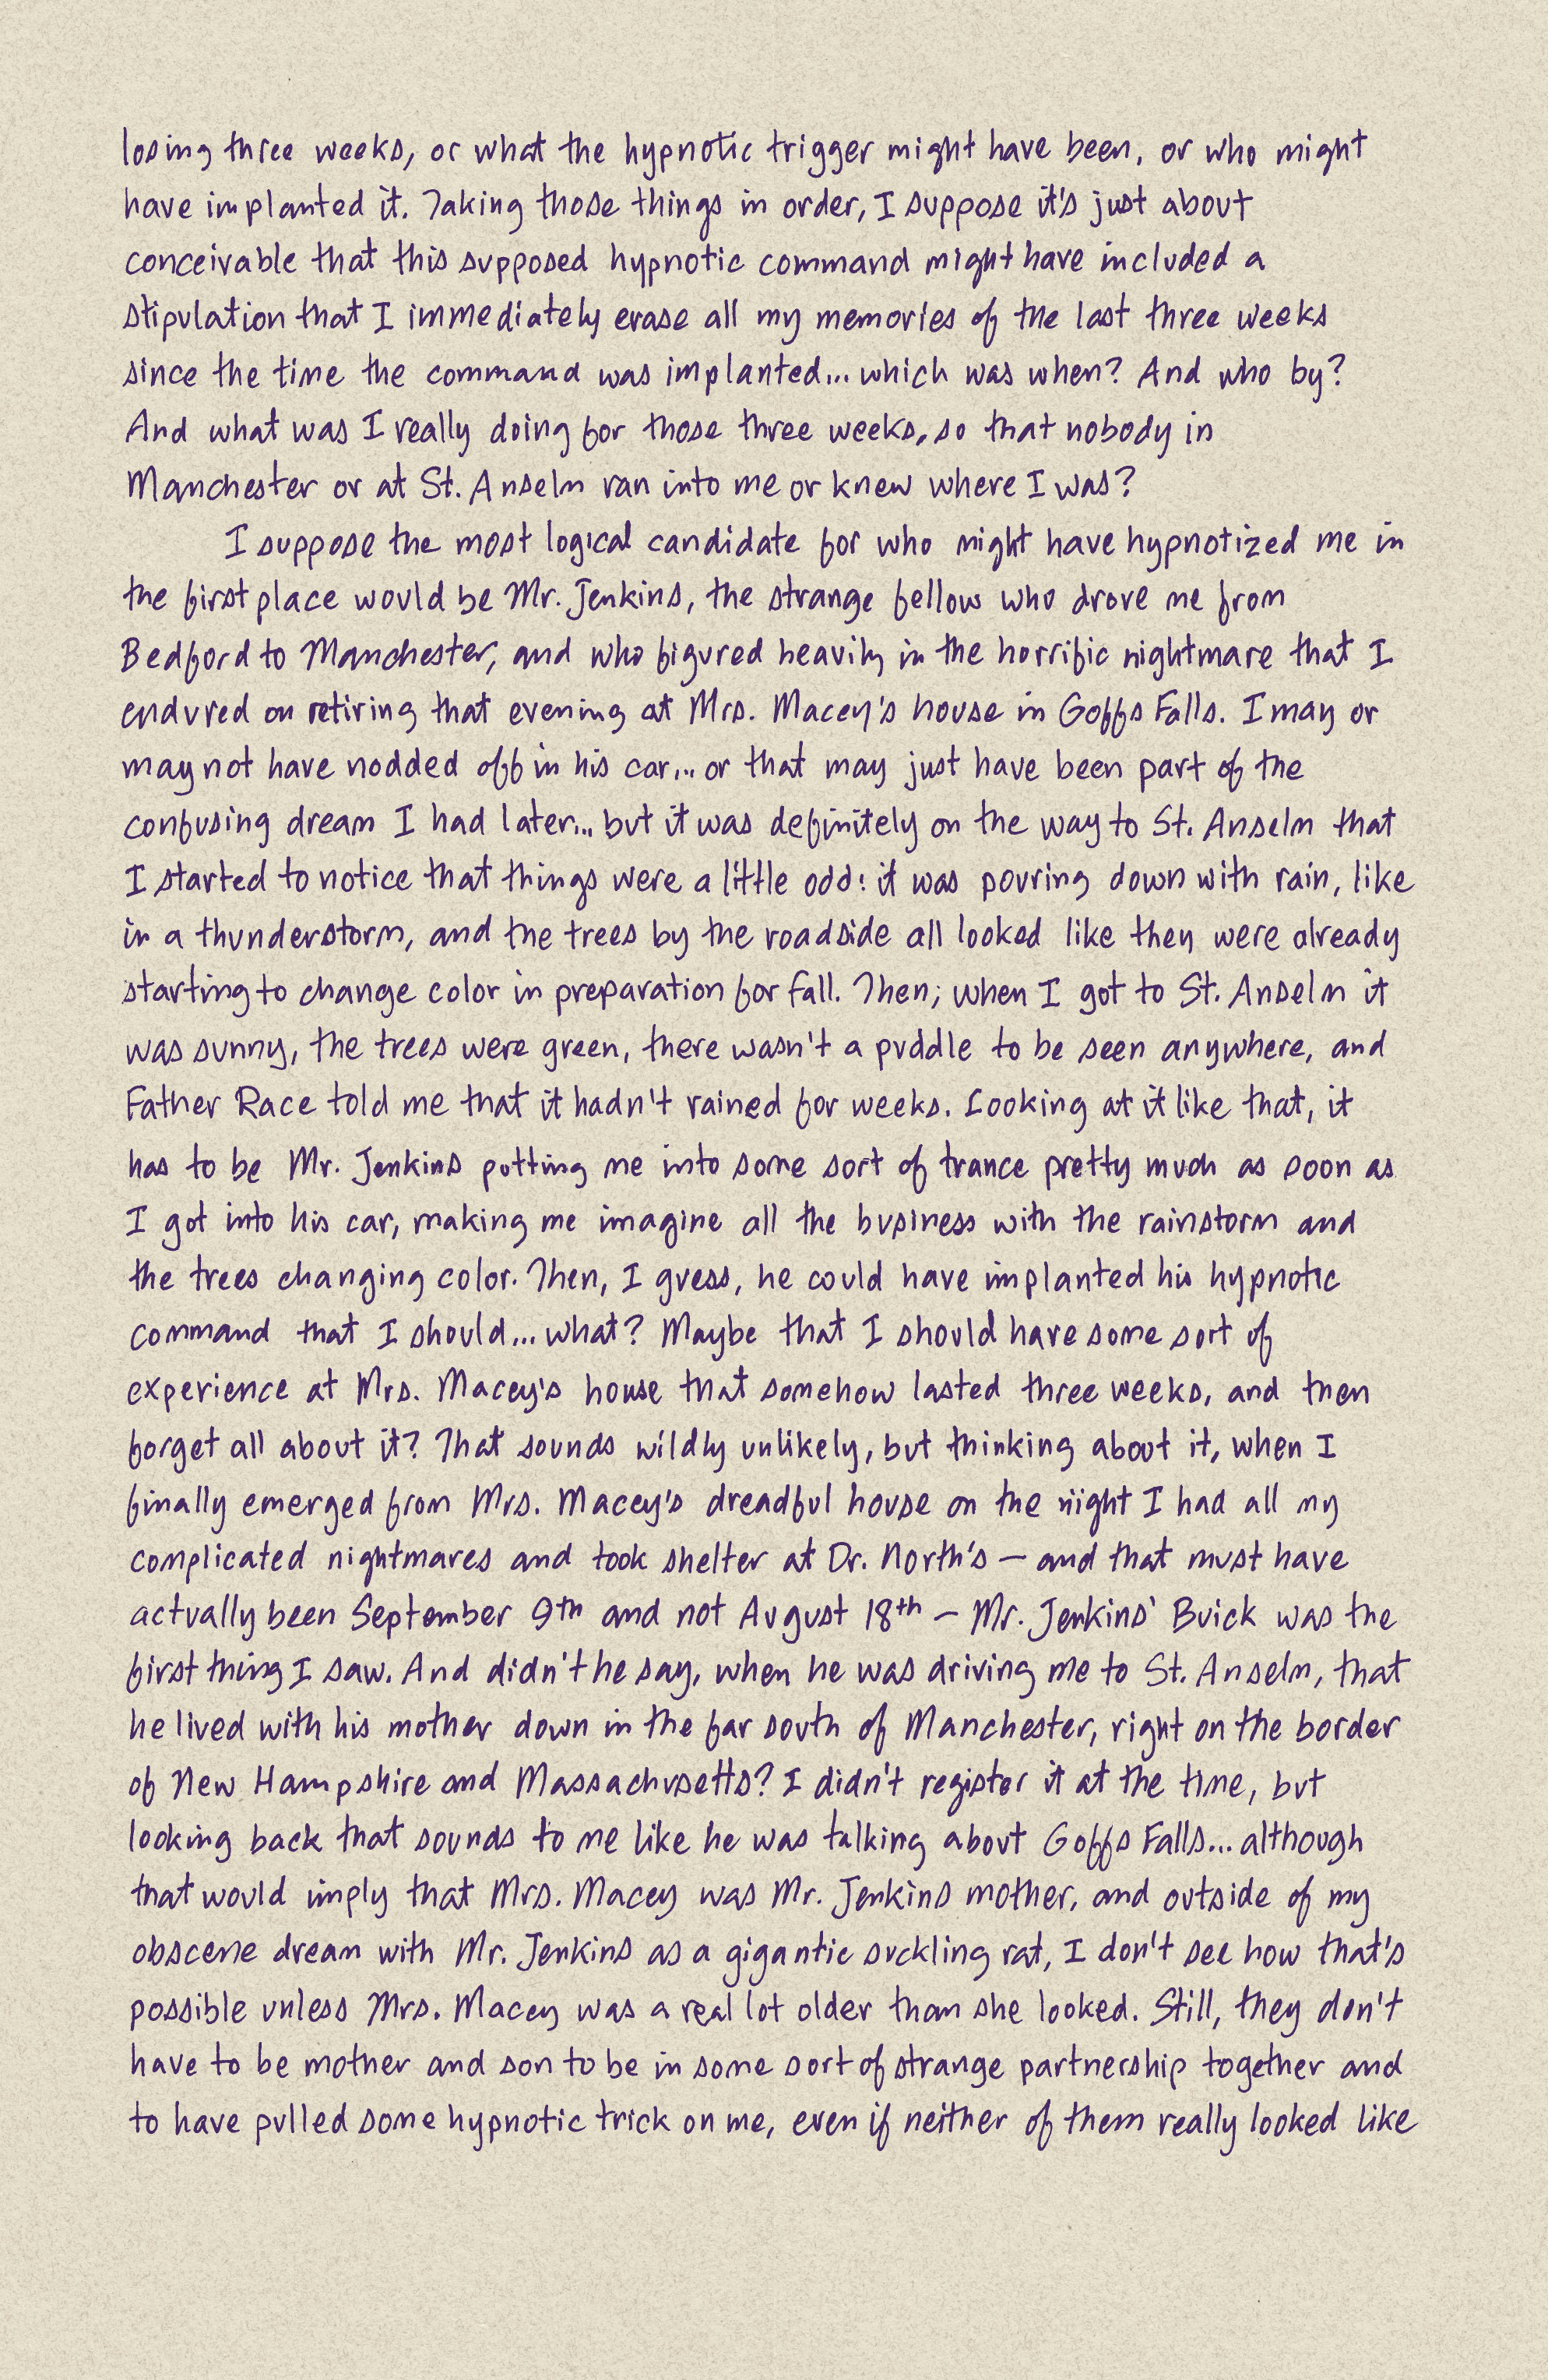 losing three weeks, or what the hypnotic trigger might have been, or who might
have implanted it. Taking those things in order, I suppose it's just about
conceivable that this supposed hypnotic command might have included a
stipulation that I immediately erase all my memories of the last three weeks
since the time the command was implanted... which was when? And who by?
And what was I really doing for those three weeks, so that nobody in
Manchester or at St. Anselm ran into me or knew where I was?
I suppose the most logical candidate for who might have hypnotized me in
the first place would be Mr. Jenkins, the strange fellow who drove me from
Bedford to Manchester, and who figured heavily in the horrific nightmare that I
endured on retiring that evening at Mrs. Macey's house in Goffs Falls. I may or
may not have nodded off in his car... or that may just have been part of the
confusing dream I had later... but it was definitely on the way to St. Anselm that
I started to notice that things were a little odd: it was pouring down with rain, like
in a thunderstorm, and the trees by the roadside all looked like they were already
starting to change color in preparation for fall. Then, when I got to St. Anselm it
was sunny, the trees were green, there wasn't a puddle to be seen anywhere, and
Father Race told me that it hadn't rained for weeks. Looking at it like that, it
has to be Mr. Jenkins putting me into some sort of trance pretty much as soon as
I got into his car, making me imagine all the business with the rainstorm and
the trees changing color. Then, I guess, he could have implanted his hypnotic
command that I should... what? Maybe that I should have some sort of
experience at Mrs. Macey's house that somehow lasted three weeks, and then
forget all about it? That sounds wildly unlikely, but thinking about it, when I
finally emerged from Mrs. Macey's dreadful house on the night I had all my
complicated nightmares and took shelter at Dr. North's – and that must have
actually been September 9th and not August 18th – Mr. Jenkins' Buick was the
first thing I saw. And didn't he say, when he was driving me to St. Anselm, that
he lived with his mother down in the far south of Manchester, right on the border
of New Hampshire and Massachusetts? I didn't register it at the time, but
looking back that sounds to me like he was talking about Goffs Falls... although
that would imply that Mrs. Macey was Mr. Jenkins mother, and outside of my
obscene dream with Mr. Jenkins as a gigantic suckling rat, I don't see how that's
possible unless Mrs. Macey was a real lot older than she looked. Still, they don't
have to be mother and son to be in some sort of strange partnership together and
to have pulled some hypnotic trick on me, even if neither of them really looked like